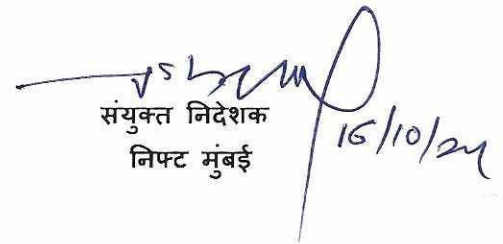 संयुक्त निदेशक
निफ्ट मुंबई
16/10/24